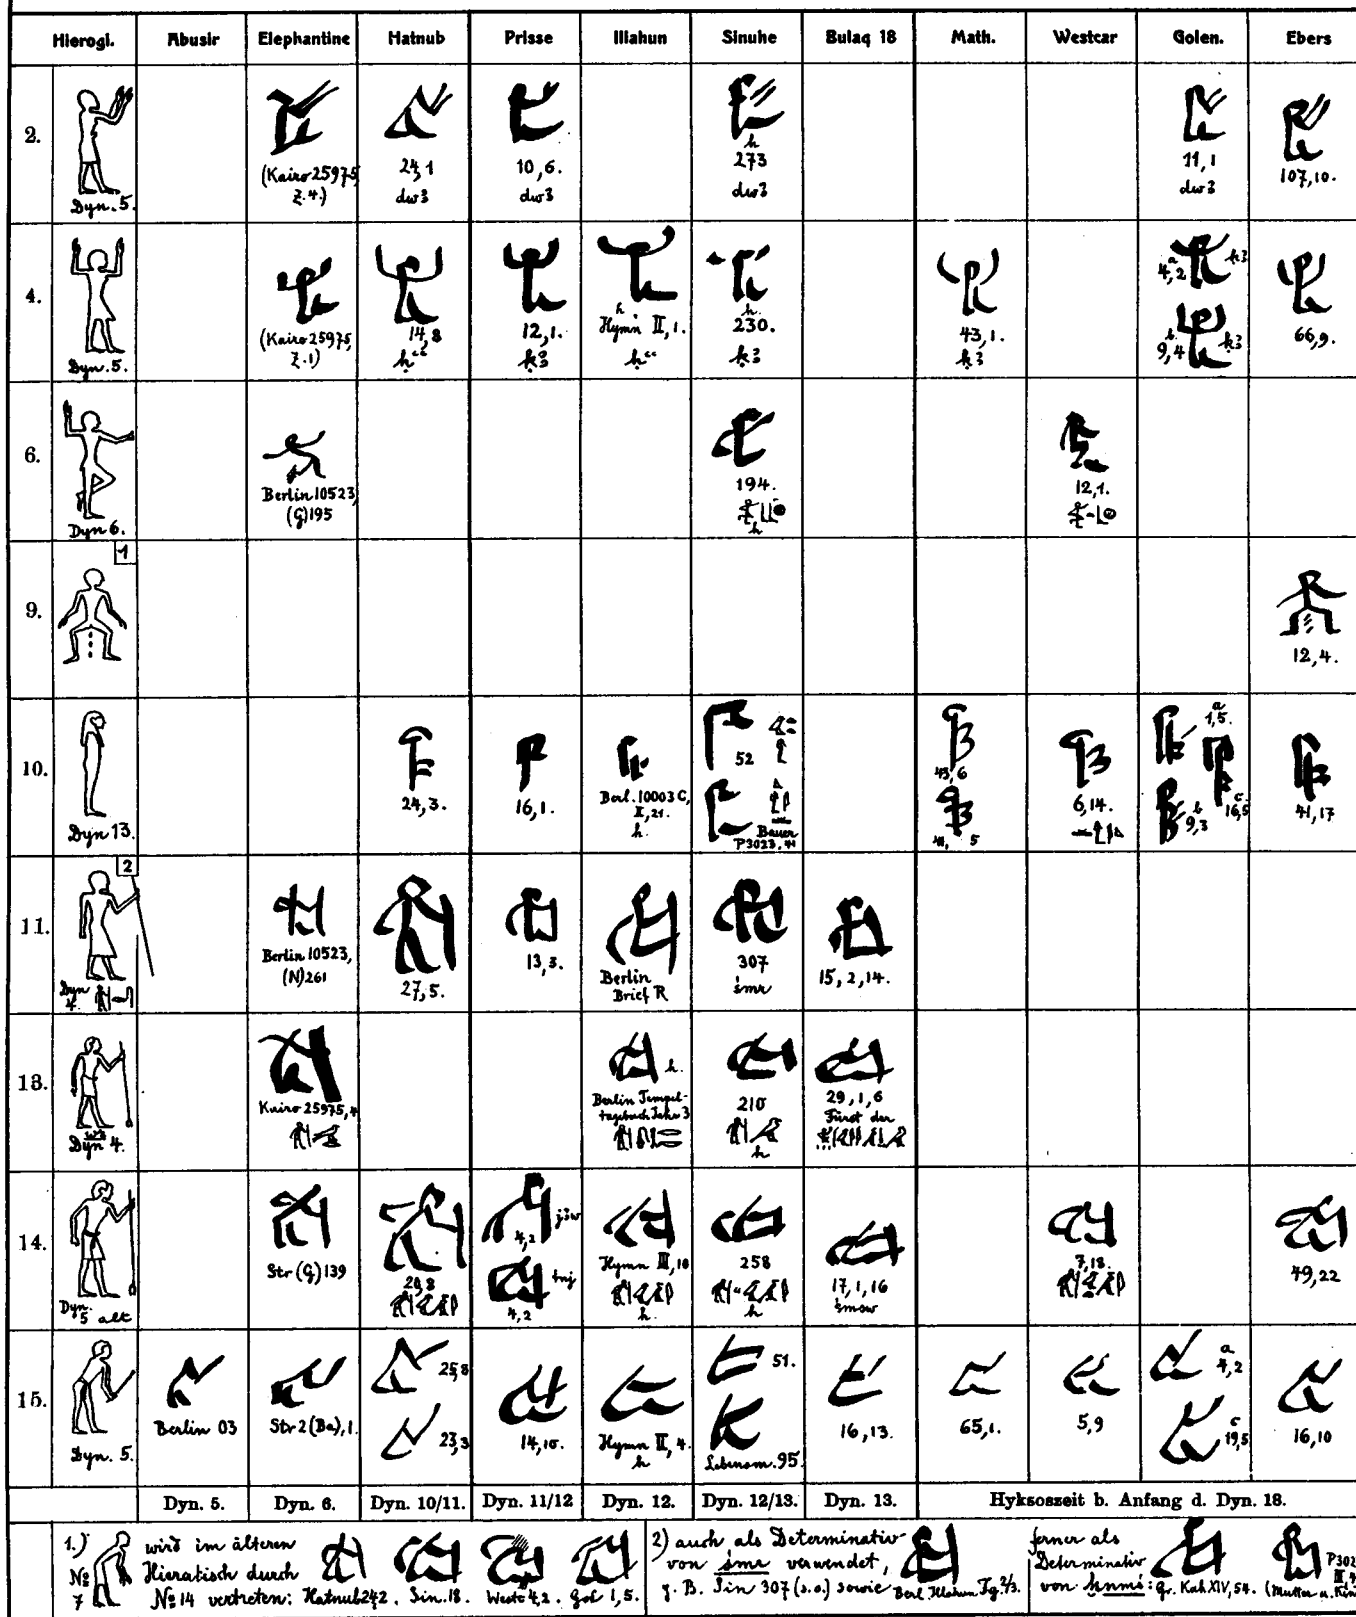 Hierogl. Abusir Elephantine Hatnub Prisse Illahun Sinuhe Bulaq 18 Math. Westcar Golen. Ebers
2.
Dyn. 5.
(Kairo 25975,
Z. 4.)
24,1
dw3
10,6.
dw3
h
273
dw3
11,1
dw3
107,10.
4.
Dyn. 5.
(Kairo 25975,
Z. 1)
14,8
12,1.
h
Hymn II, 1.
h.
230.
43,1.
a
4,2
b
9,4
66,9.
6.
Dyn 6.
Berlin 10523,
(G) 195
194.
h
12,1.
9.
1
12,4.
10.
Dyn 13.
24,3.
16,1.
Berl. 10003 C,
II, 21.
h.
52
Bauer
P3023, 41
43,6
6,14.
a
1,5.
b
9,3
c
16,5
41,17
11.
2
Dyn
4.
Berlin 10523,
(N) 261
27,5.
13,3.
Berlin
Brief R
307
śmr
15,2,14.
13.
Dyn 4.
Kairo 25975, 4
h.
Berlin Tempel-
tagebuch Jahr 3
210
h
29,1,6
Fürst der
14.
Dyn.
5 alt
Str (G) 139
20,8
4,2
j3w
4,2
tnj
Hymn III, 10
h.
258
h
17,1,16
śmsw
7,18.
49,22
15.
Dyn. 5.
Berlin 03
Str 2 (Ba), 1.
25,8
23,3
14,10.
Hymn II, 4.
h
51.
Lebensm. 95.
16,13.
65,1.
5,9
a
4,2
c
19,5
16,10
Dyn. 5. Dyn. 6. Dyn. 10/11. Dyn. 11/12 Dyn. 12. Dyn. 12/13. Dyn. 13. Hyksoszeit b. Anfang d. Dyn. 18.
1.)
№
7
wird im älteren
Hieratisch durch
№ 14 vertreten: Hatnub 24,2. Sin. 18. West 4,2. Gol 1,5.
2) auch als Determinativ
von śmr verwendet,
z. B. Sin 307 (s.o.) sowie Berl. Illahun Tg. 2/3.
ferner als
Determinativ
von ḫnmś: Gr. Kah XIV, 54.